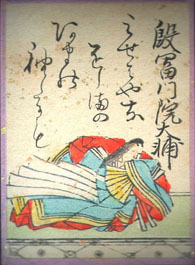 殷富門院大輔
みせはやな
をしまの
あまの
袖たにも